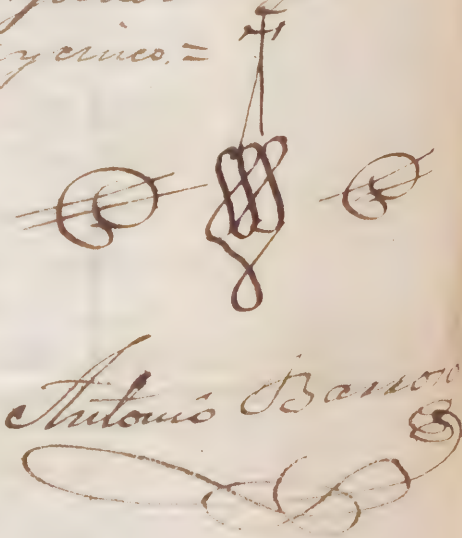 y cinco. =
Antonio Barroso